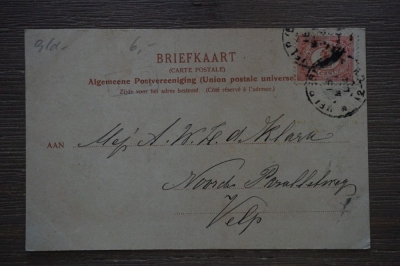 6,-
BRIEFKAART
(CARTE POSTALE)
Algemeene Postvereeniging (Union postale universe
Zijde voor het adres bestemd. (Côté réservé à l'adresse.)
AAN
Mej A. W. H. d.
Noorder Parallelweg
Velp